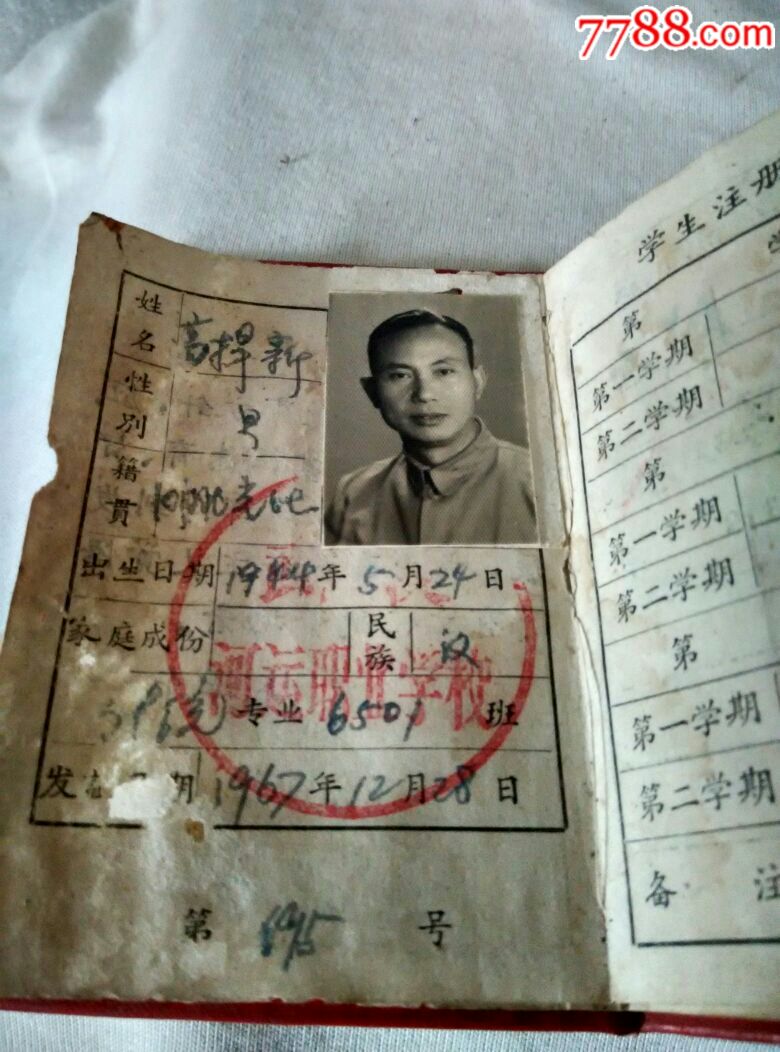 7788.com
姓名 高捍新
性别 男
籍贯
出生日期 1944年5月24日
家庭成份 民族 汉
专业 6501 班
发 期 1967年12月28日
河运职业学校
第 号
学生注册
第
第一学期
第二学期
第
第一学期
第二学期
第
第一学期
第二学期
备注